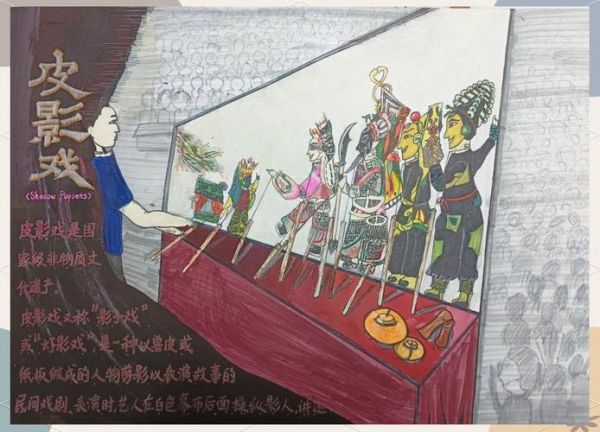 皮影戏
(Shadow Puppets)
皮影戏是国
家级非物质文
化遗产
皮影戏又称“影子戏”
或“灯影戏”,是一种以兽皮或
纸板做成的人物剪影以表演故事的
民间戏剧。表演时,艺人在白色幕布后面操纵影人,讲述